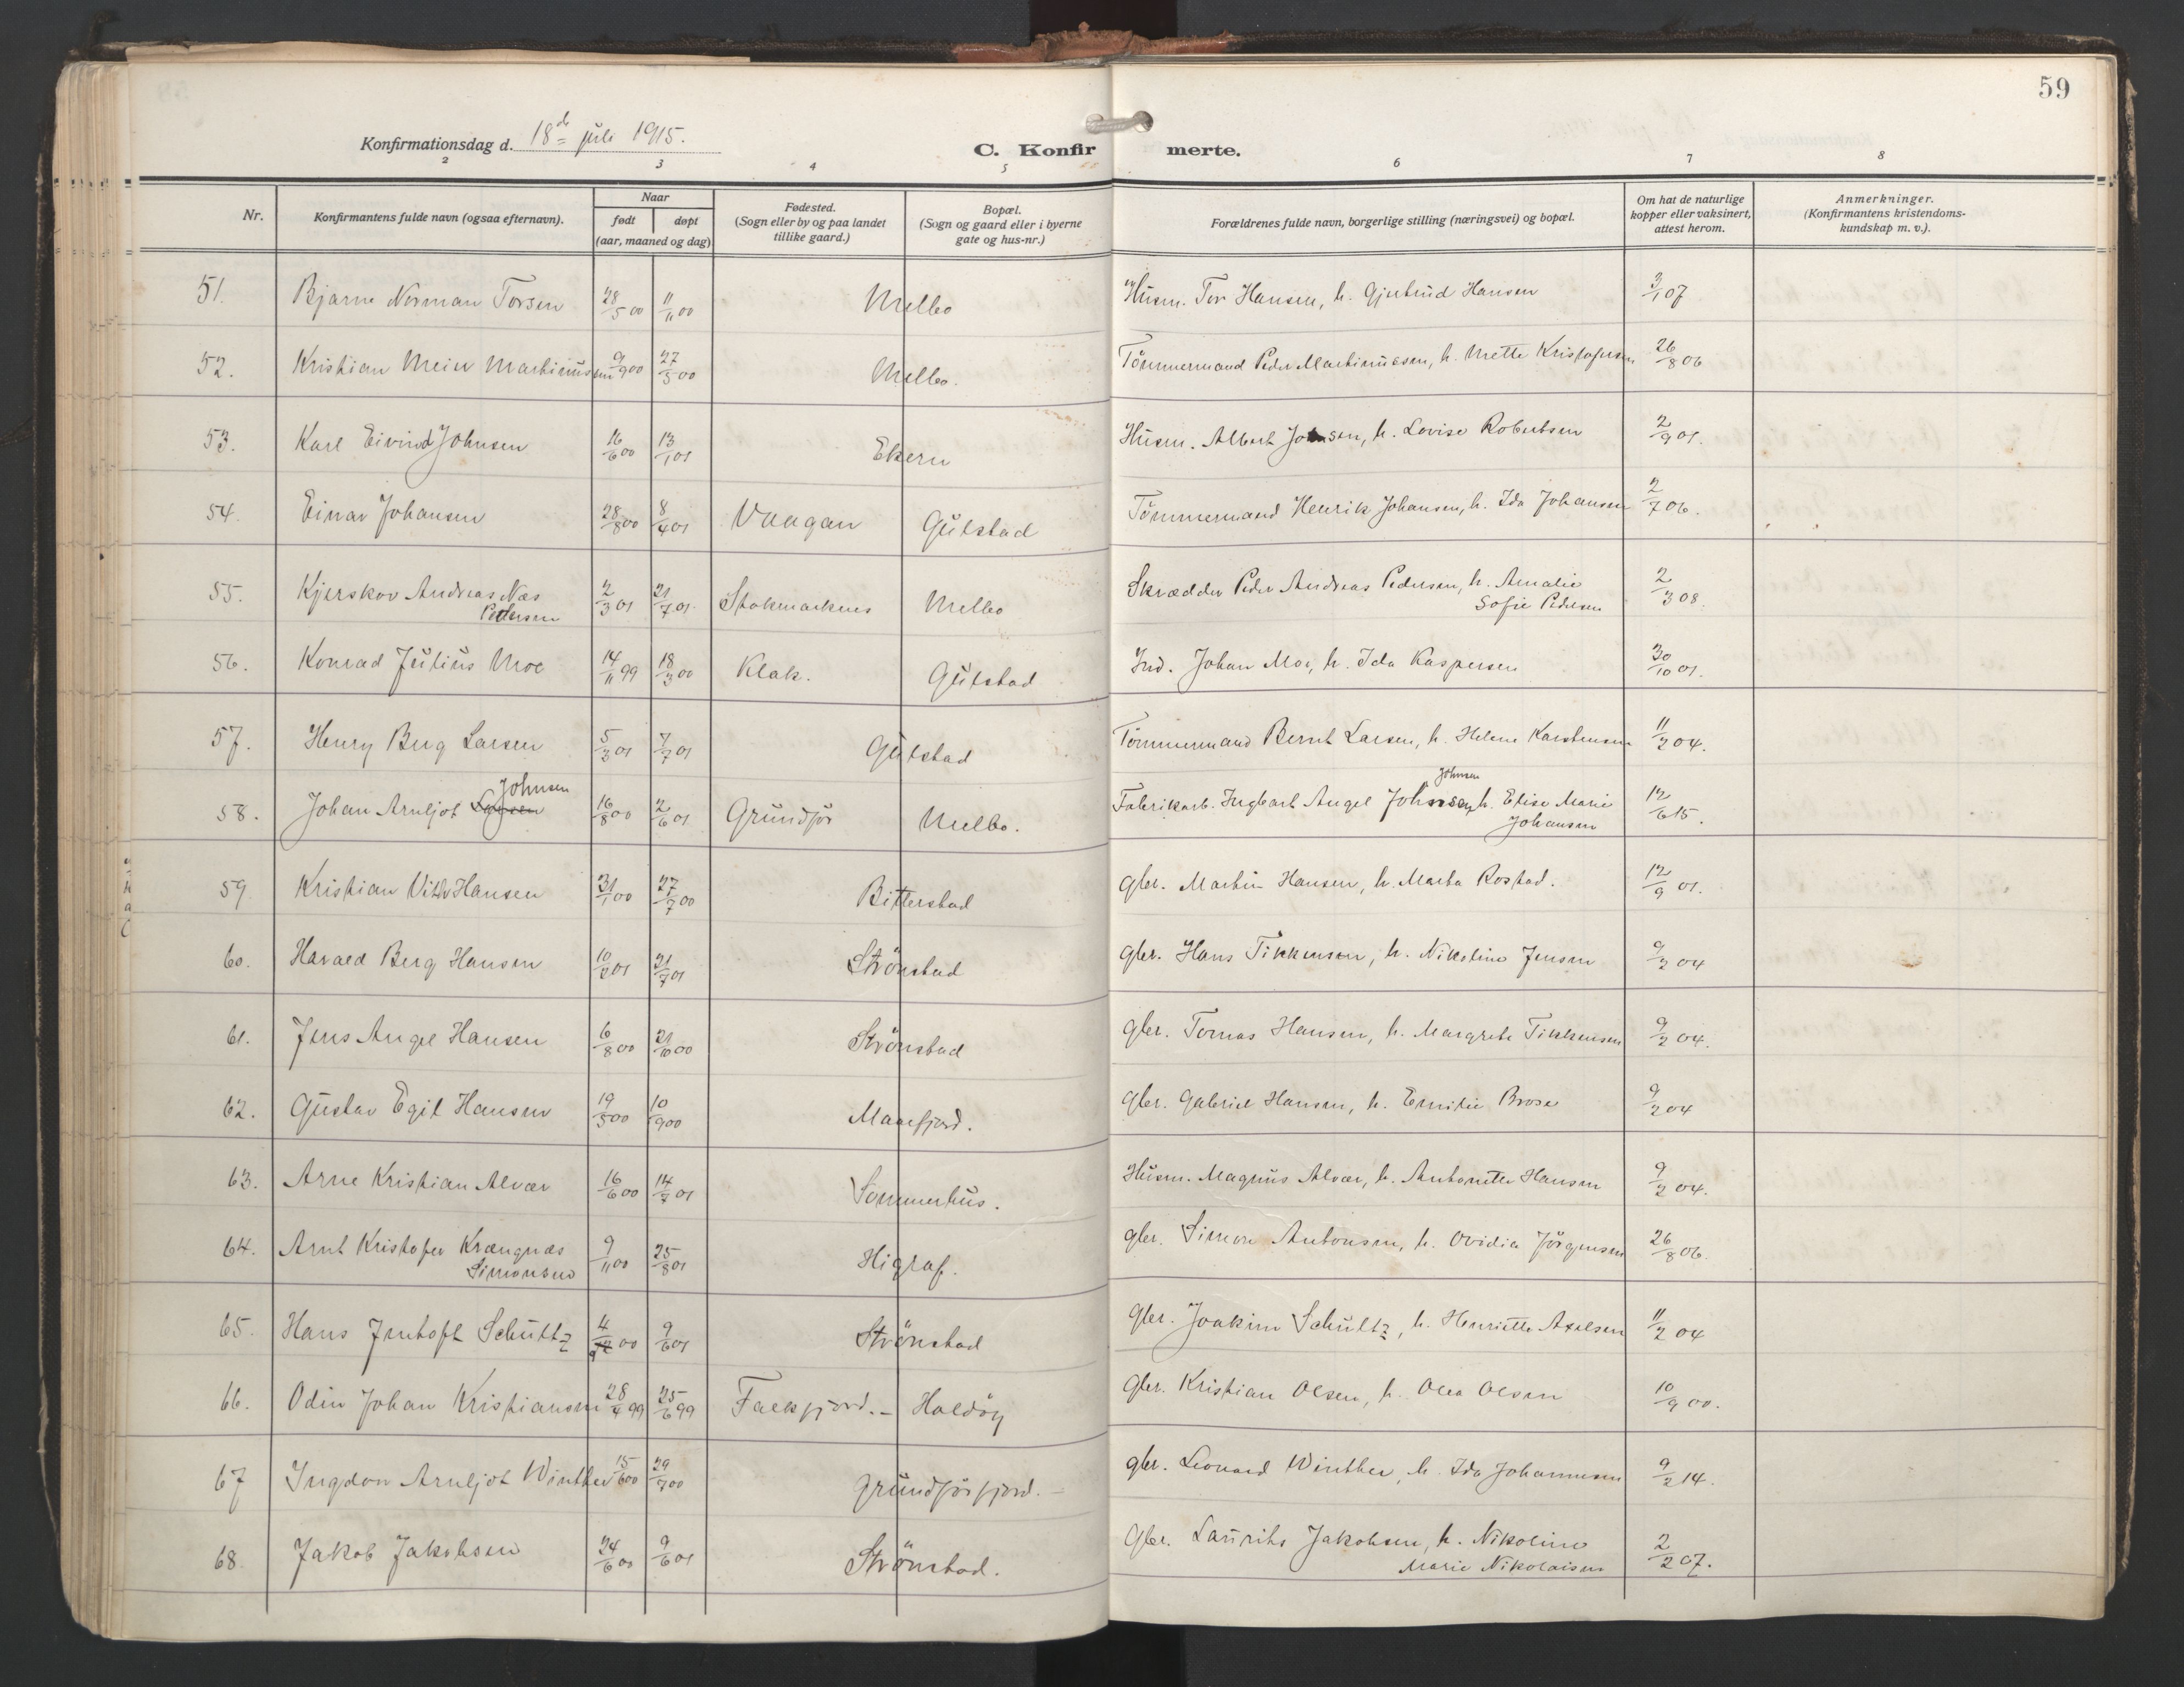 59
Konfirmationsdag d. 18de juli 1915.
C. Konfirmerte.
2 3 4 5 6 7 8
Nr. Konfirmantens fulde navn (ogsaa efternavn). Naar født døpt (aar, maaned og dag) Fødested. (Sogn eller by og paa landet tillike gaard.) Bopæl. (Sogn og gaard eller i byerne gate og hus-nr.) Forældrenes fulde navn, borgerlige stilling (næringsvei) og bopæl. Om hat de naturlige kopper eller vaksinert, attest herom. Anmerkninger. (Konfirmantens kristendoms-kundskap m. v.).
51. Bjarne Norman Torsen 28/5 00 11/11 00 Melbo Husm. Tor Hansen, h. Gjertrud Hansen 3/1 07
52. Kristian Meier Martinussen 9/9 00 27/5 00 Melbo. Tömmermand Peder Martinussen, h. Mette Kristofersen 26/8 06
53. Karl Eivind Johnsen 16/6 00 13/1 01 Ekern Husm. Albert Johnsen, h. Lovise Robertsen 2/9 01.
54. Einar Johansen 28/8 00 8/4 01 Vaagan Gulstad Tömmermand Henrik Johansen, h. Ida Johansen 2/7 06.
55. Kjerskov Andreas Næs Pedersen 2/3 01 21/7 01. Stokmarknes Melbo Skrædder Peder Andreas Pedersen, h. Amalie Sofie Pedersen 2/3 08.
56. Konrad Julius Moe 14/11 99 18/3 00 Klak. Gulstad Ind. Johan Moe, h. Ida Kaspersen 30/10 01.
57. Henry Berg Larsen 5/3 01 7/7 01 Gulstad Tömmermand Bernt Larsen, h. Helene Karstensen 11/2 04.
58. Johan Arnljot Larsen Johnsen 16/8 00 2/6 01 Grundfør Melbo. Fabrikarb. Ingbart Angel Johnsen, h. Elise Marie Johansen 12/6 15.
59. Kristian Hansen 31/1 00 27/7 00 Bitterstad gbr. Martin Hansen, h. Marta Rostad. 12/9 01.
60. Harald Berg Hansen 10/2 01 21/7 01 Strönstad gbr. Hans Tikkensen, h. Nikoline Jensen 9/2 04
61. Jens Angel Hansen 6/8 00 21/10 00 Strönstad gbr. Tomas Hansen, h. Margrete Tikkensen 9/2 04.
62. Gustav Egil Hansen 19/5 00 10/9 00 Maarfjord. gbr. Gabriel Hansen, h. Emilie Brose 9/2 04
63. Arne Kristian Alvær 16/6 00 14/7 01 Sommerhus. Husm. Magnus Alvær, h. Antonette Hansen 9/2 04.
64. Arnt Kristofer Krængnæs Simonsen 9/11 00 25/8 01 Higraf. gbr. Simon Antonsen, h. Ovidia Jörgensen 26/8 06.
65. Hans Jentoft Schültz 4/9 00 9/6 01 Strönstad gbr. Joakim Schültz, h. Henriette Axelsen 11/2 04
66. Odin Johan Kristiansen 28/4 99 25/6 99 Falkfjord. – Haldöy gbr. Kristian Olsen, h. Olea Olsen 10/9 00.
67 Ingdon Arnljot Winther 15/6 00 29/7 00 Grundførfjord. – gbr. Leonard Winther, h. Ida Johannesen 9/2 14.
68. Jakob Jakobsen 24/6 00 9/6 01 Strönstad. Gbr. Laurits Jakobsen, h. Nikoline Marie Nikolaisen 2/2 07.